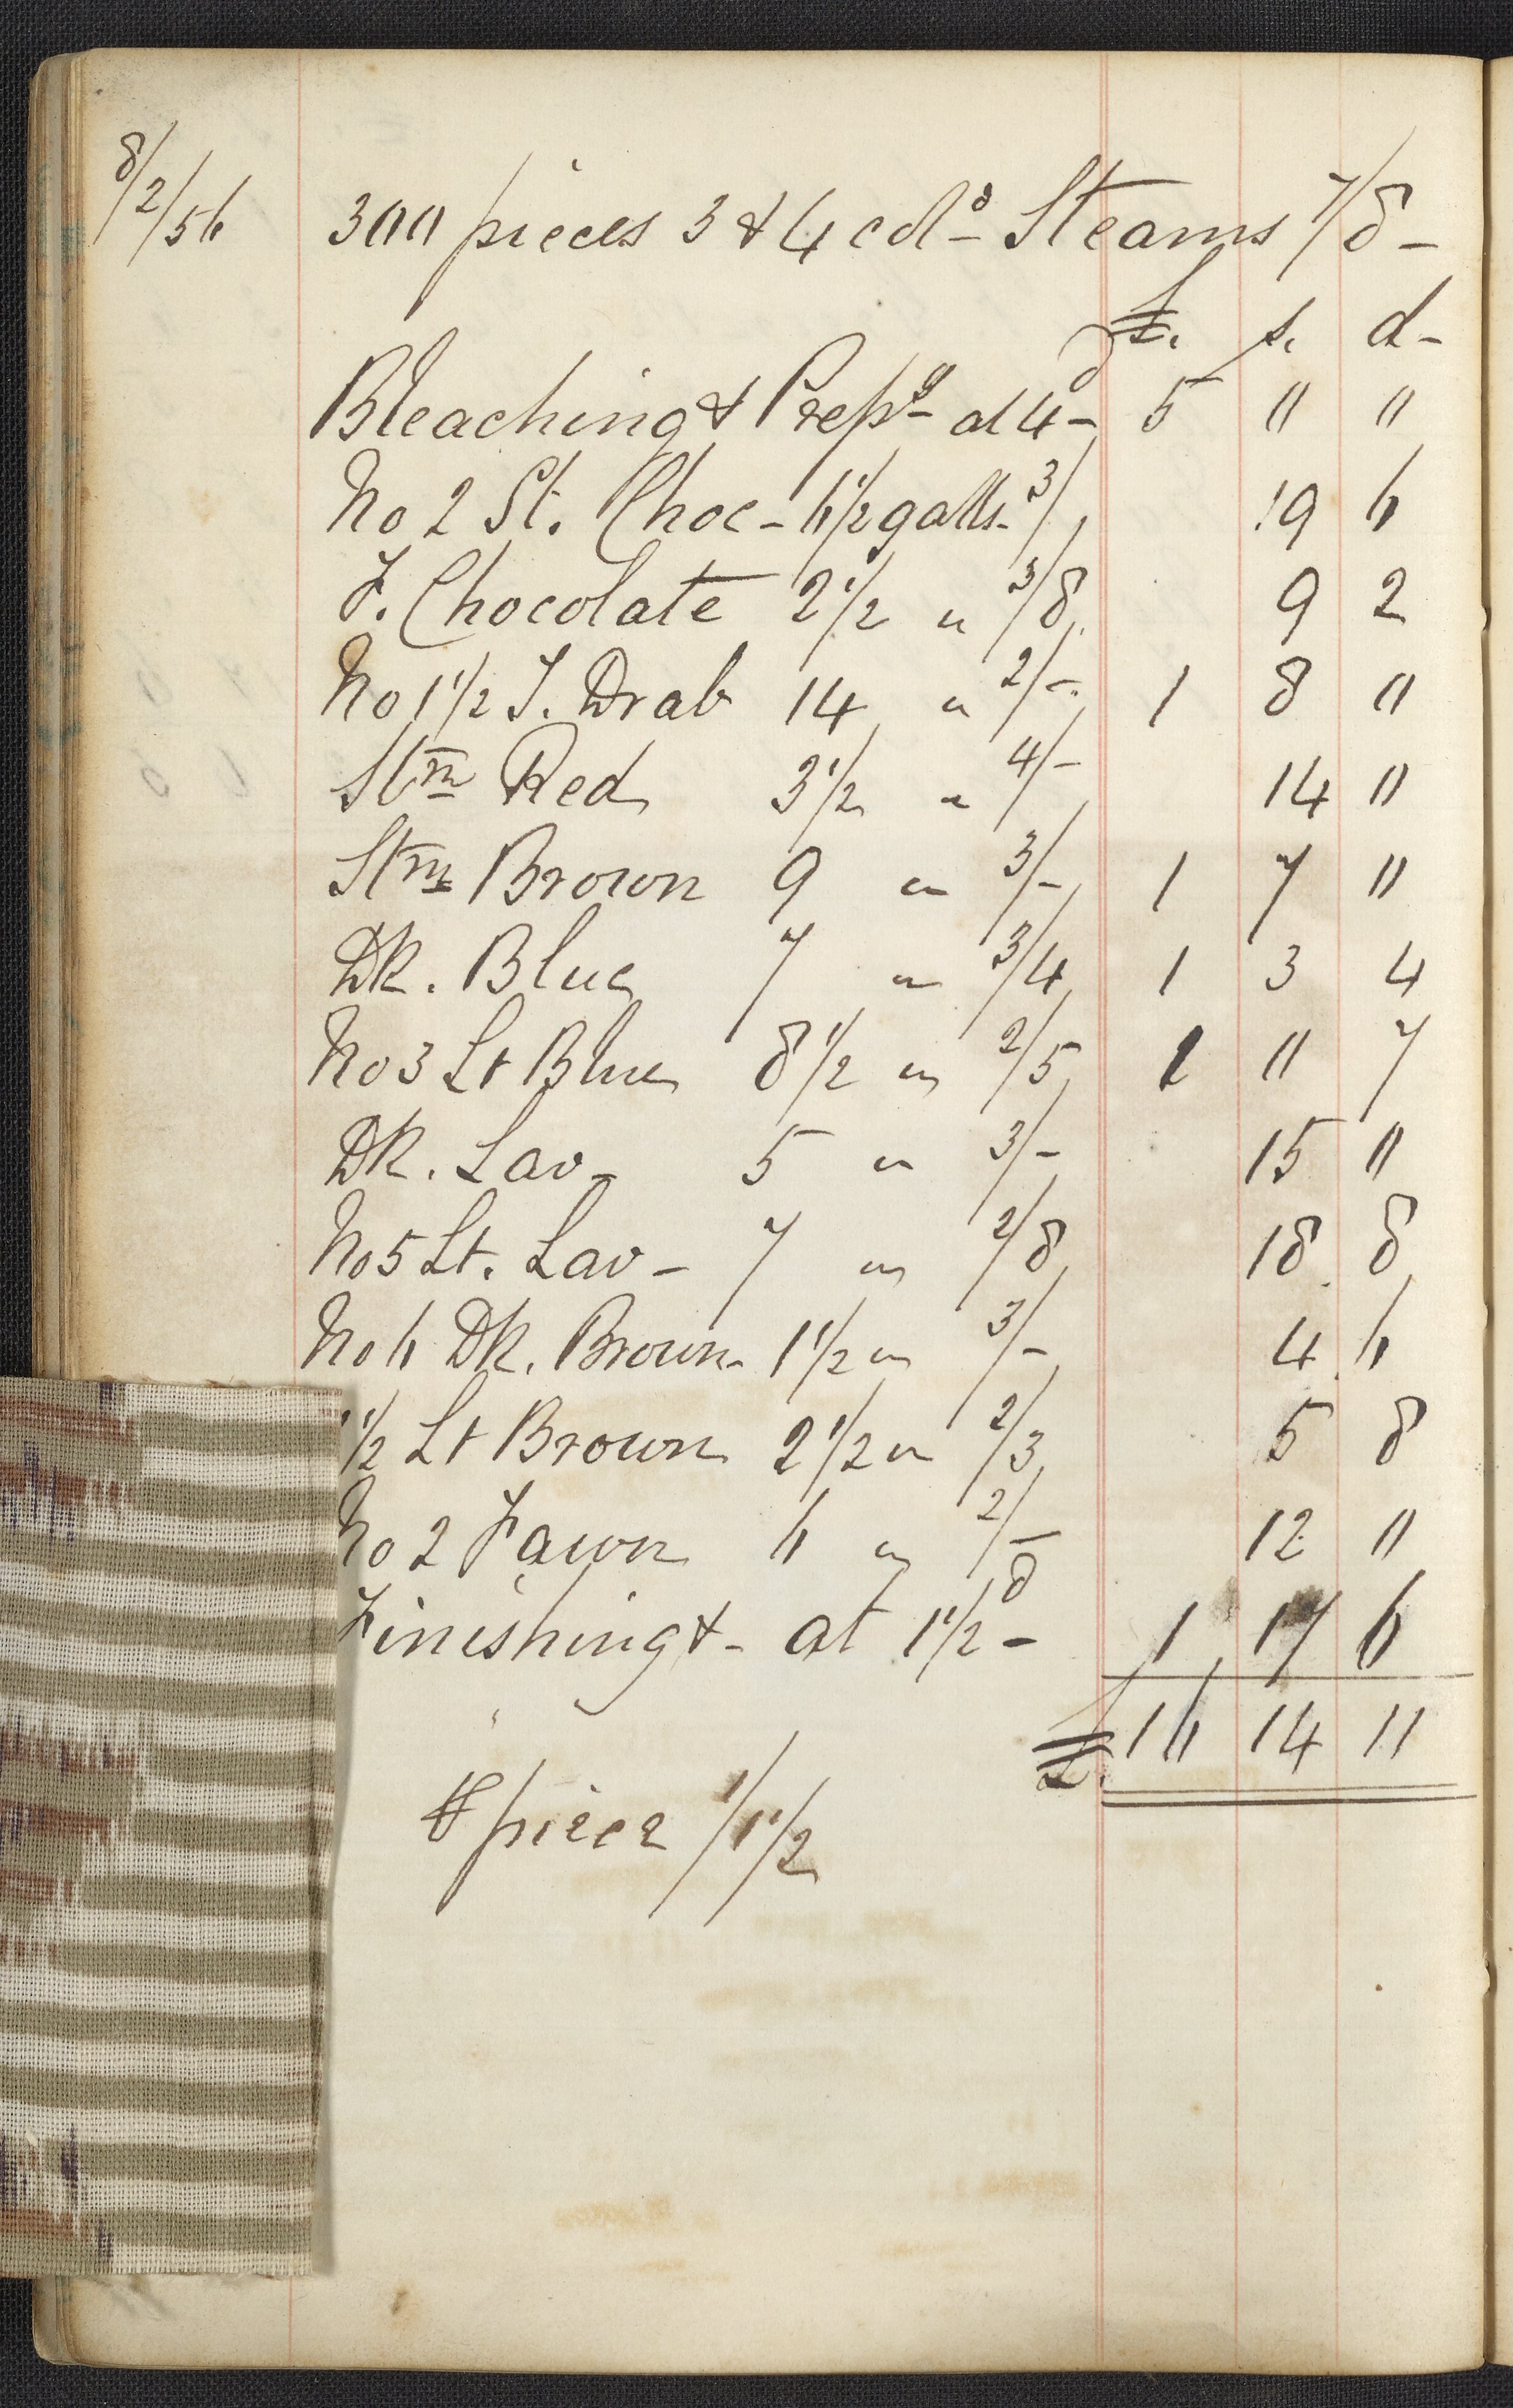 8/2/56 300 pieces 3 & 4 cols - Steams 7/8 -
£. s. d -
Bleaching & Prepg - at 4d - 5 " "
No 2 St. Choc - 6 1/2 galls. 3/ 19 6
F. Chocolate 2 1/2 " 3/8 9 2
No 1 1/2 S. Drab 14 " 2/- 1 8 "
Stm Red 3 1/2 " 4/- 14 "
Stm Brown 9 " 3/- 1 7 "
Dk. Blue 7 " 3/4 1 3 4
No 3 Lt Blue 8 1/2 " 2/5 1 " 7
Dk. Lav - 5 " 3/- 15 "
No 5 Lt. Lav - 7 " 2/8 18 8
No 6 Dk. Brown - 1 1/2 " 3/- 4 6
1/2 Lt Brown 2 1/2 " 2/3 5 8
No 2 Fawn 6 " 2/- 12 "
Finishing & - at 1 1/2d - 1 17 6
£. 16 14 11
⅌ piece 1/1 1/2